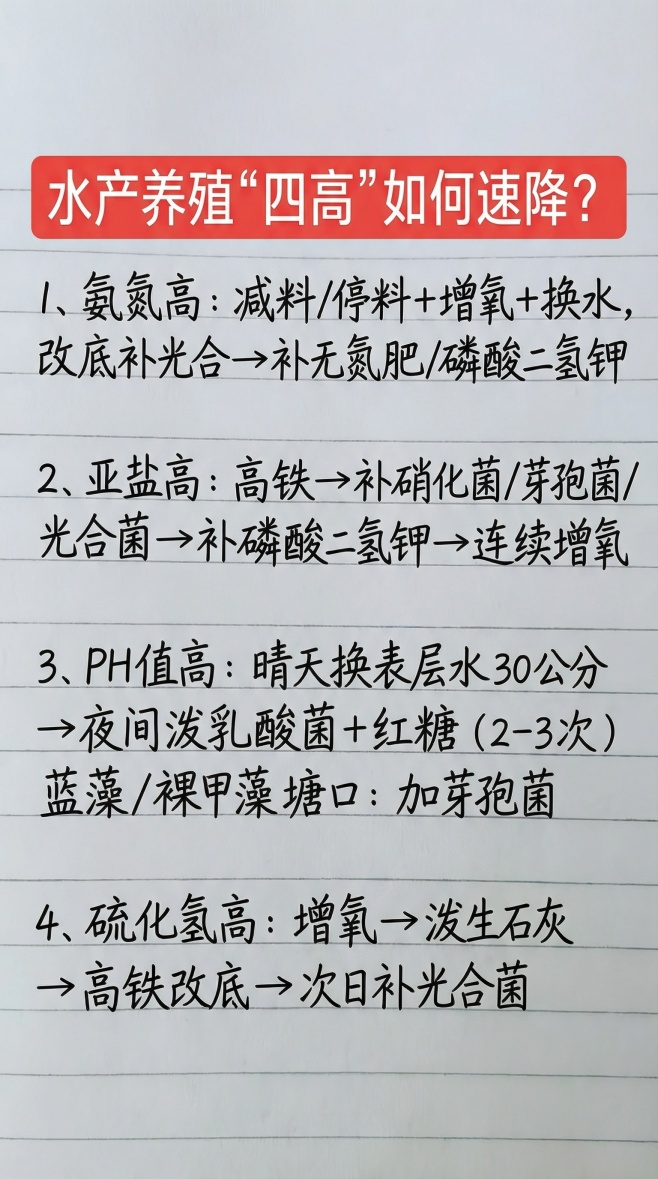 水产养殖“四高”如何速降？
1、氨氮高：减料/停料+增氧+换水，
改底补光合→补无氮肥/磷酸二氢钾
2、亚盐高：高铁→补硝化菌/芽孢菌/
光合菌→补磷酸二氢钾→连续增氧
3、PH值高：晴天换表层水30公分
→夜间泼乳酸菌+红糖（2-3次）
蓝藻/裸甲藻塘口：加芽孢菌
4、硫化氢高：增氧→泼生石灰
→高铁改底→次日补光合菌